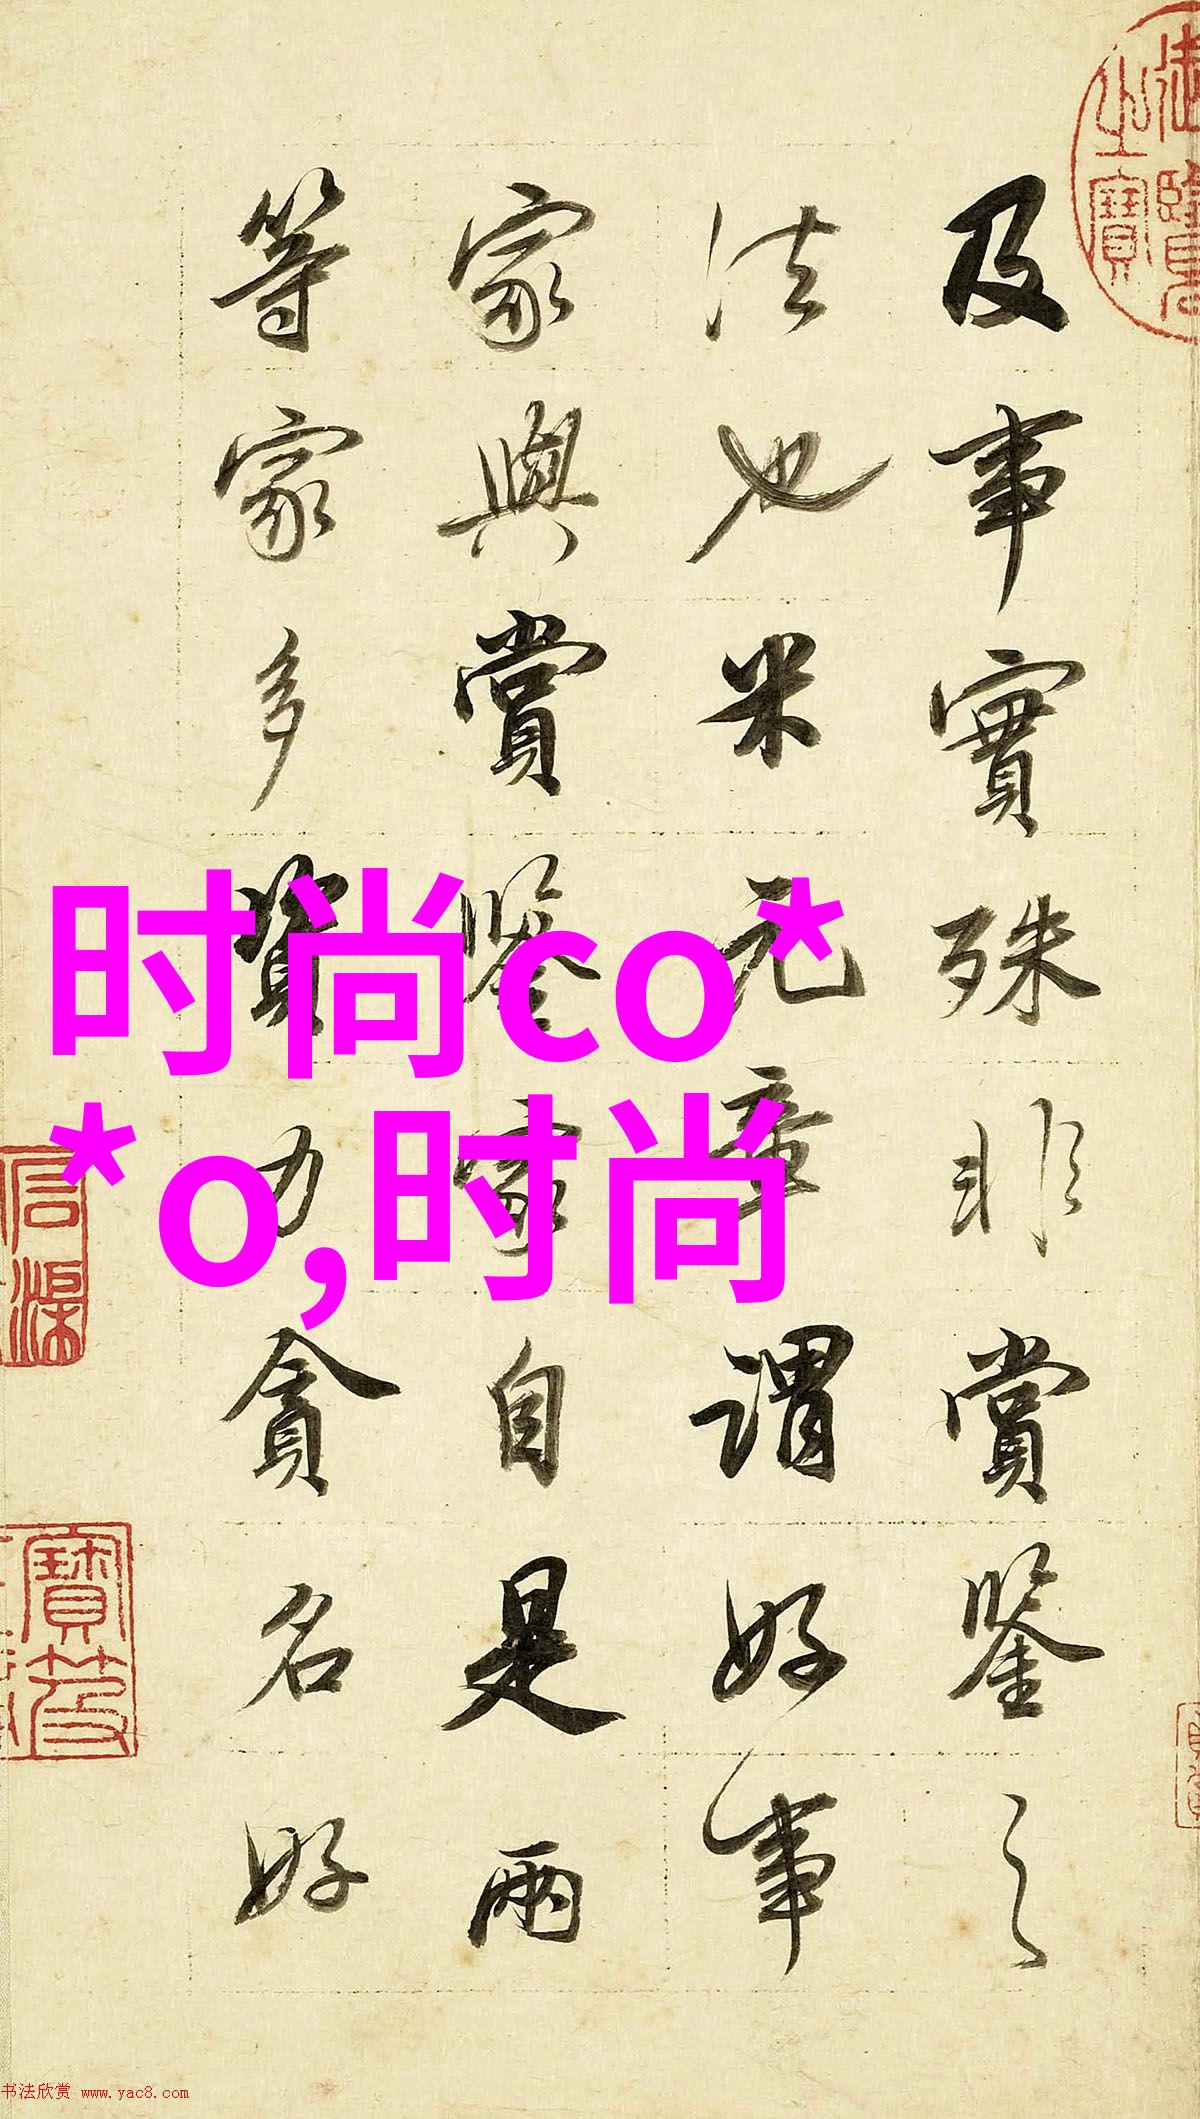 及事實殊非賞鑒之
法也米元章謂好事
家與賞鑒家自是兩
等家多資力貪名好
时尚co*
*o,时尚
之寶
书法欣赏 www.yac8.com